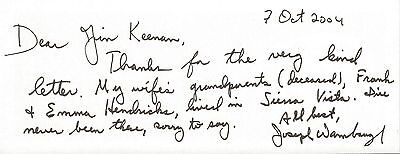 7 Oct 2004
Dear Jim Keenan,
Thanks for the very kind
letter. My wife's grandparents (deceased), Frank
& Emma Hendricks, lived in Sierra Vista. I've
never been there, sorry to say.
All best,
Joseph Wambaugh